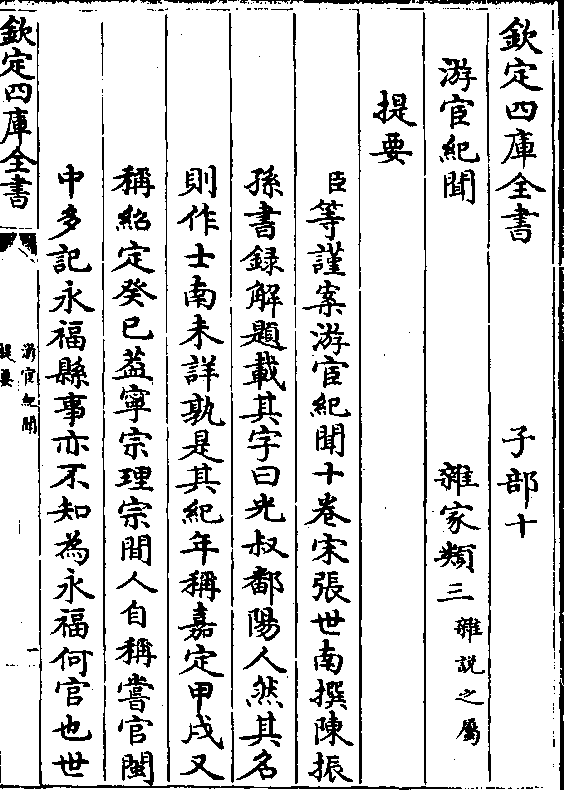 欽定四庫全書　　子部十
游宦紀聞　　雜家類三雜說之屬
提要
臣等謹案游宦紀聞十卷宋張世南撰陳振
孫書録解題載其字曰光叔鄱陽人然其名
則作士南未詳孰是其紀年稱嘉定甲戌又
稱紹定癸巳葢寧宗理宗間人自稱嘗官閩
中多記永福縣事亦不知為永福何官也世
欽定四庫全書
游宦紀聞
提要
一